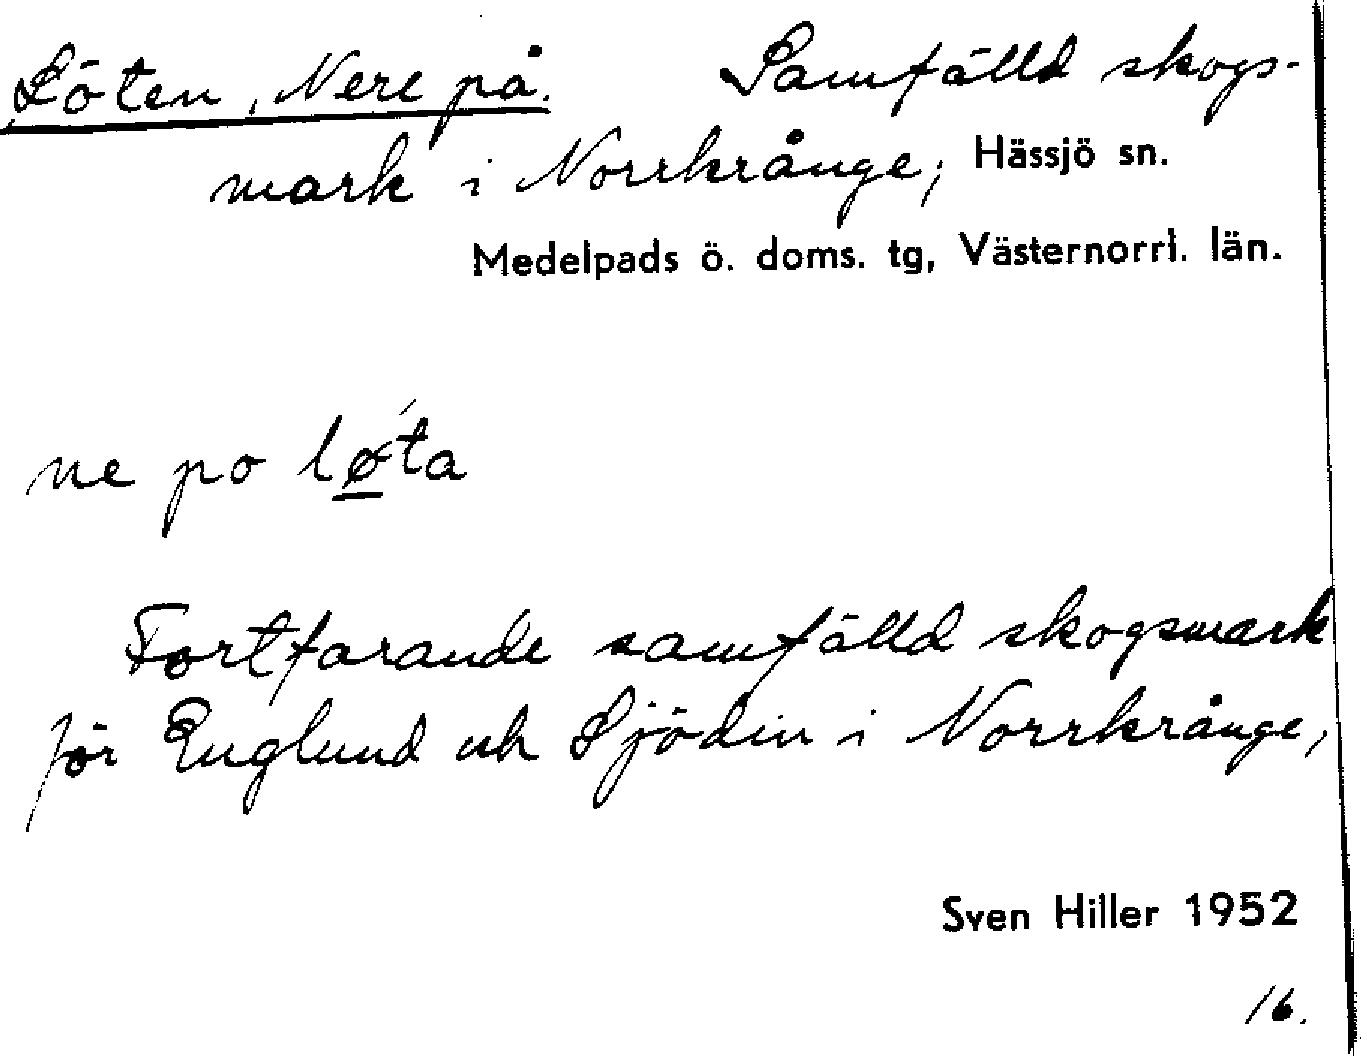 Löten, Nere på. Samfälld skogs-
mark i Norrkrånge, Hässjö sn.
Medelpads ö. doms. tg, Västernorrl. län.
ne po lø̲´ta
Fortfarande samfälld skogsmark
för Englund och Sjödin i Norrkrånge,
Sven Hiller 1952
16.